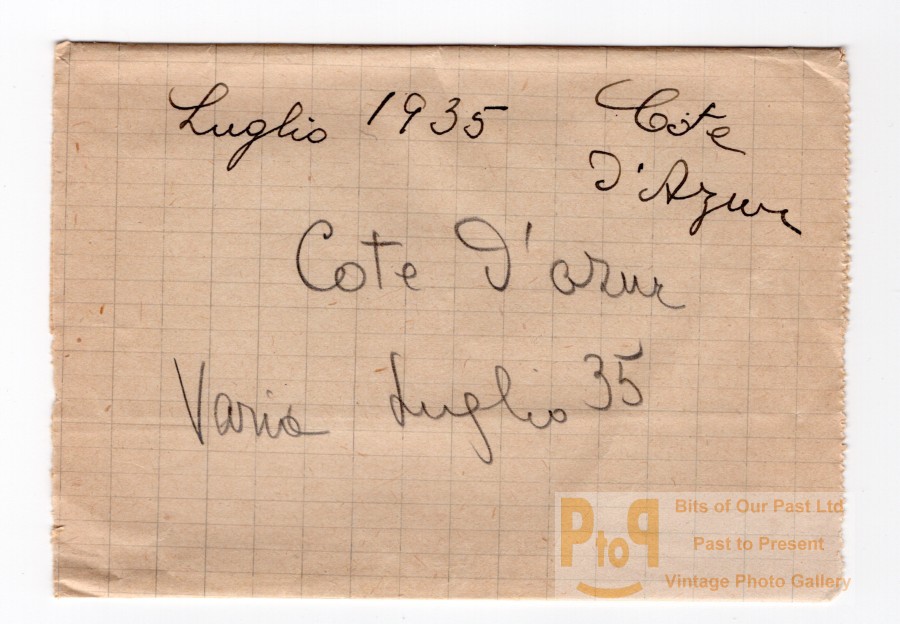 Luglio 1935 Côte
D'Azur
Cote D'azur
Varia Luglio 35
PtoP
Bits of Our Past Ltd
Past to Present
Vintage Photo Gallery